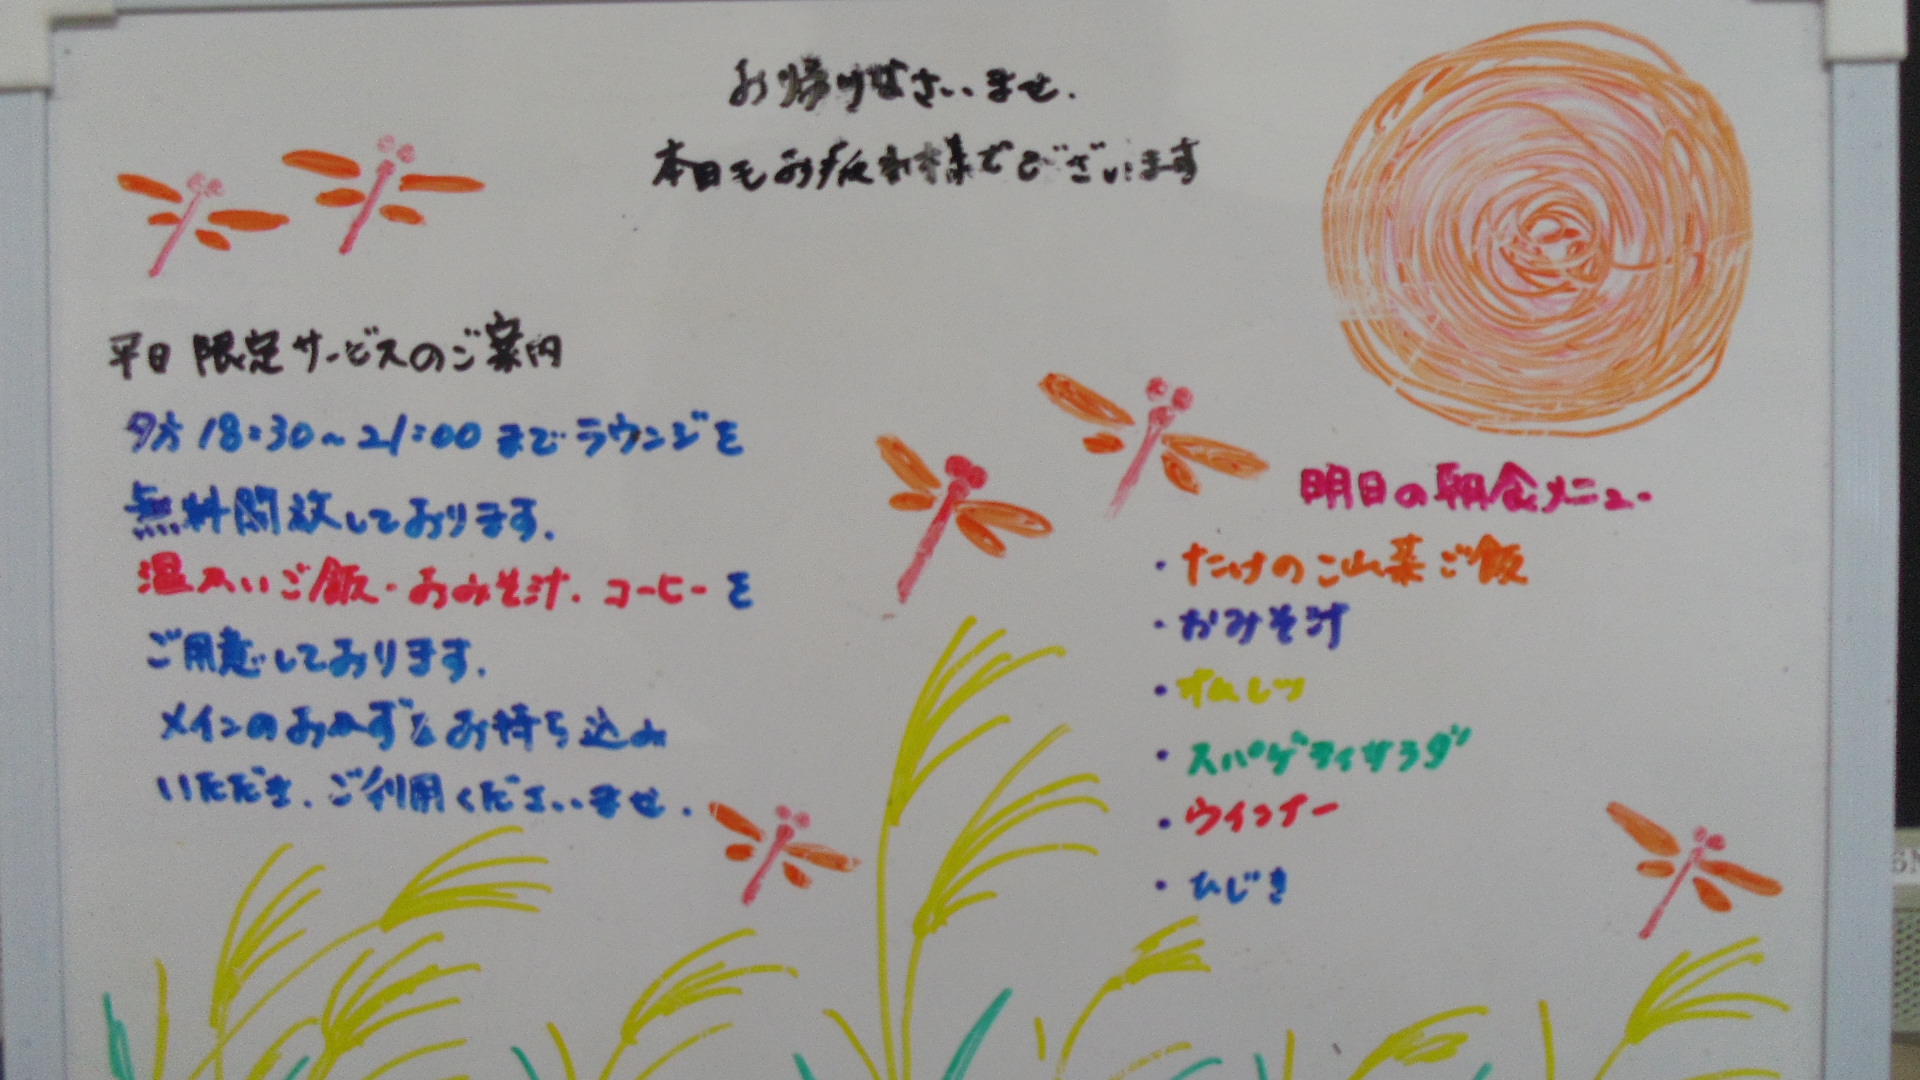 お帰りなさいませ.
本日もお疲れ様でございます
平日限定サービスのご案内
夕方18:30~21:00までラウンジを
無料開放しております.
温かいご飯・おみそ汁.コーヒーを
ご用意しております.
メインのおかずをお持ち込み
いただき.ご利用くださいませ.
明日の朝食メニュー
・たけのこ山菜ご飯
・おみそ汁
・オムレツ
・スパゲティサラダ
・ウインナー
・ひじき